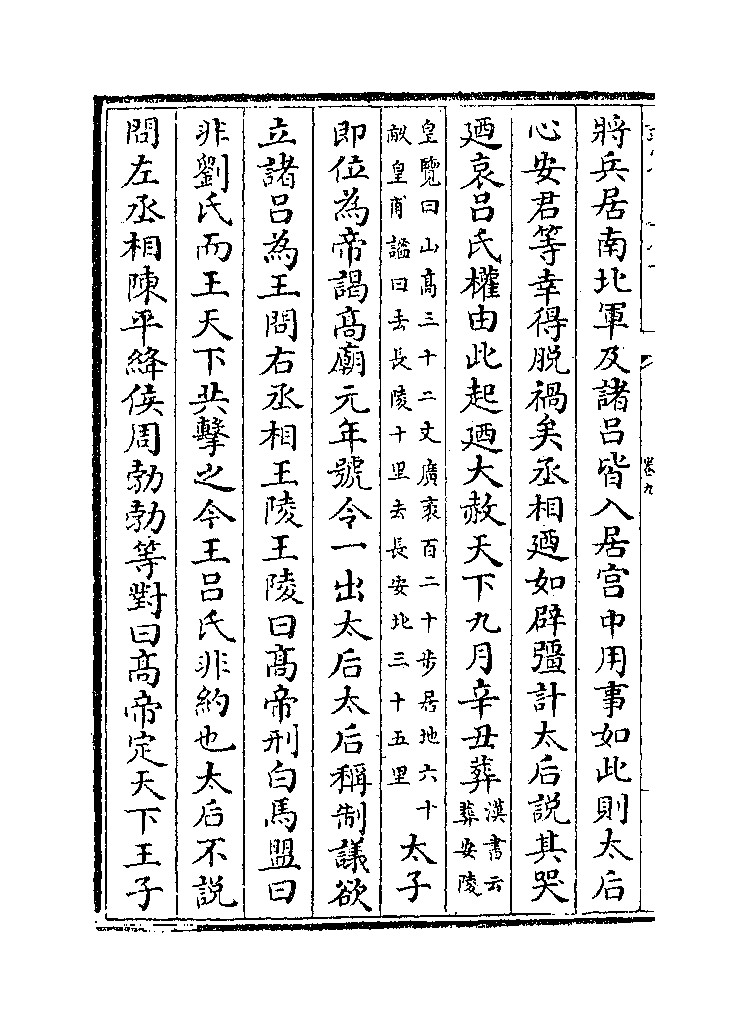 卷九
將兵居南北軍及諸呂皆入居宫中用事如此則太后
心安君等幸得脱禍矣丞相廼如辟彊計太后說其哭
廼哀呂氏權由此起廼大赦天下九月辛丑葬漢書云葬安陵
皇覽曰山髙三十二丈廣袤百二十步居地六十
畝皇甫謐曰去長陵十里去長安北三十五里
太子
即位為帝謁髙廟元年號令一出太后太后稱制議欲
立諸呂為王問右丞相王陵王陵曰髙帝刑白馬盟曰
非劉氏而王天下共擊之今王呂氏非約也太后不說
問左丞相陳平絳侯周勃勃等對曰髙帝定天下王子